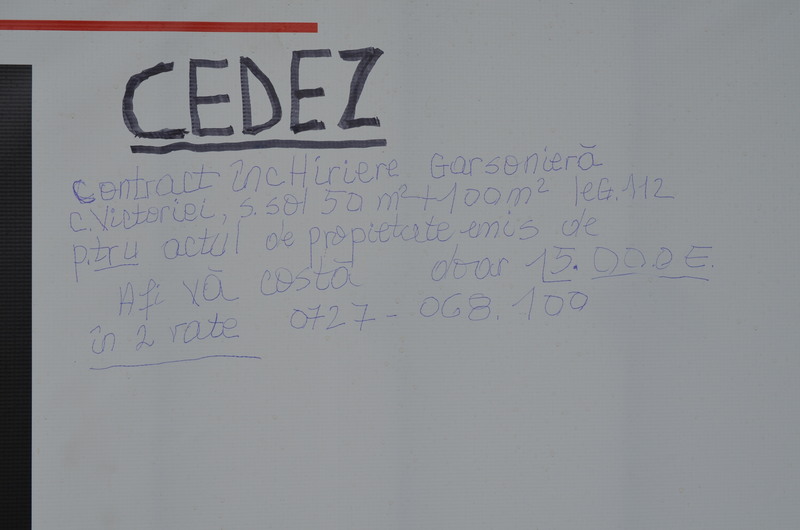 CEDEZ
Contract închiriere Garsonieră
C. Victoriei, S. Sol 50 m²+100m² leG. 112
p.tru actul de propietate emis de
Afi vă costă doar 15.000 E.
în 2 rate 0727-068.100